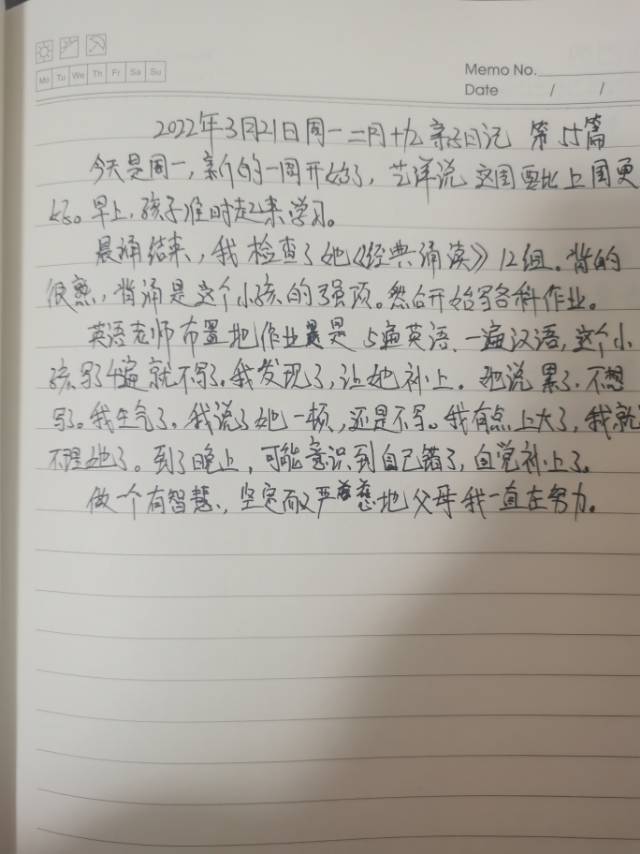 Mo Tu We Th Fr Sa Su
Memo No.
Date / /
2022年3月21日周一二月十九亲子日记 第55篇
今天是周一,新的一周开始了,艺洋说这周要比上周更
好。早上,孩子准时起来学习。
晨诵结束,我检查了她《经典诵读》12组。背的
很熟,背诵是这个小孩的强项。然后开始写各科作业。
英语老师布置地作业是5遍英语、一遍汉语,这个小
孩写了4遍就不写了。我发现了,让她补上。她说累了,不想
写。我生气了。我说了她一顿,还是不写。我有点上火了,我就
不理她了。到了晚上,可能意识到自己错了,自觉补上了。
做一个有智慧、坚定而又严慈地父母我一直在努力。